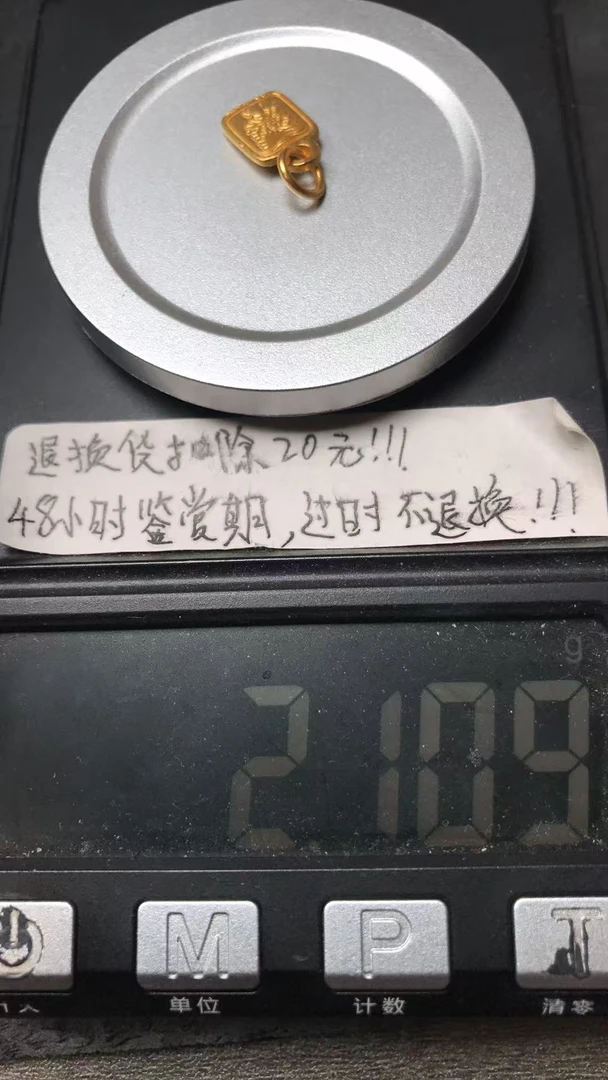 退换货扣除20元!!!
48小时鉴赏期,过时不退换!!!
g
2109
M
P
T
单位
计数
清零